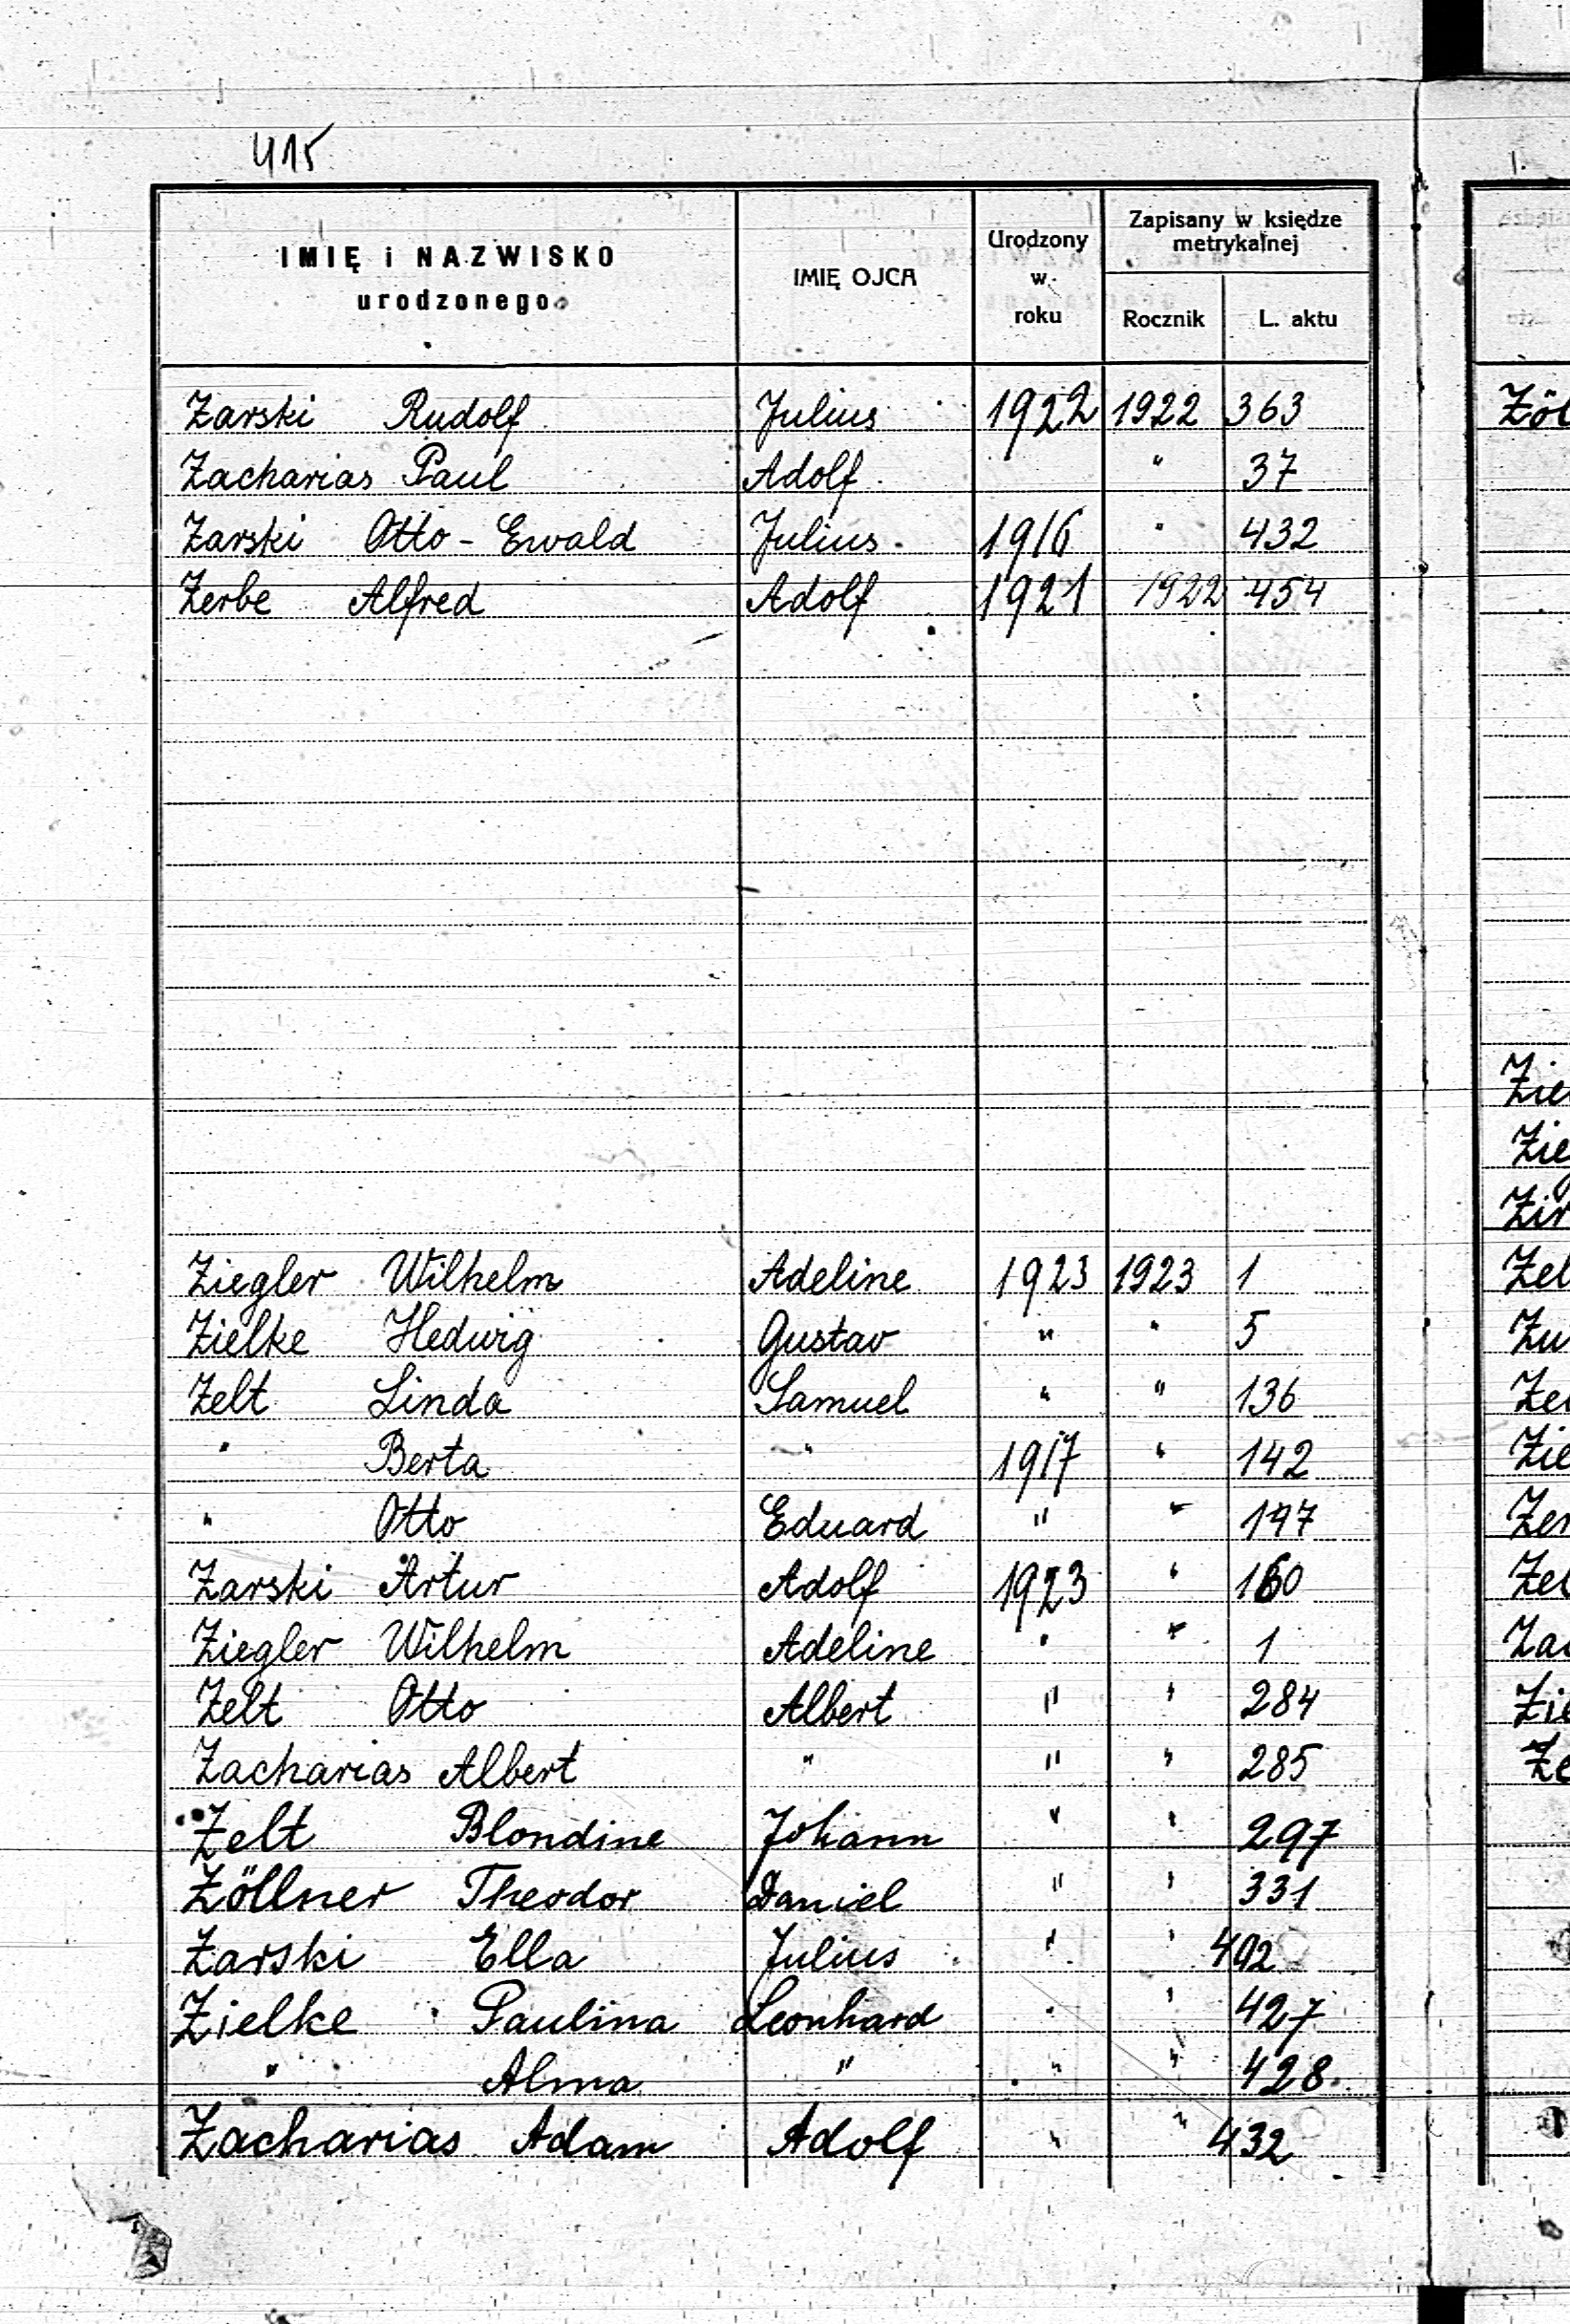 415
IMIĘ i NAZWISKO urodzonego
IMIĘ OJCA
Urodzony w roku
Zapisany w księdze metrykalnej
Rocznik
L. aktu
Zarski Rudolf Julius 1922 1922 363
Zacharias Paul Adolf " 37
Zarski Otto - Ewald Julius 1916 " 432
Zerbe Alfred Adolf 1921 1922 454
Ziegler Wilhelm Adeline 1923 1923 1
Zielke Hedwig Gustav " " 5
Zelt Linda Samuel " " 136
" Berta " 1917 " 142
" Otto Eduard " " 147
Zarski Artur Adolf 1923 " 160
Ziegler Wilhelm Adeline " " 1
Zelt Otto Albert " " 284
Zacharias Albert " " " 285
Zelt Blondine Johann " " 297
Zöllner Theodor Daniel " " 331
Zarski Ella Julius " " 492
Zielke Paulina Leonhard " " 427
" Alma " " " 428
Zacharias Adam Adolf " " 432